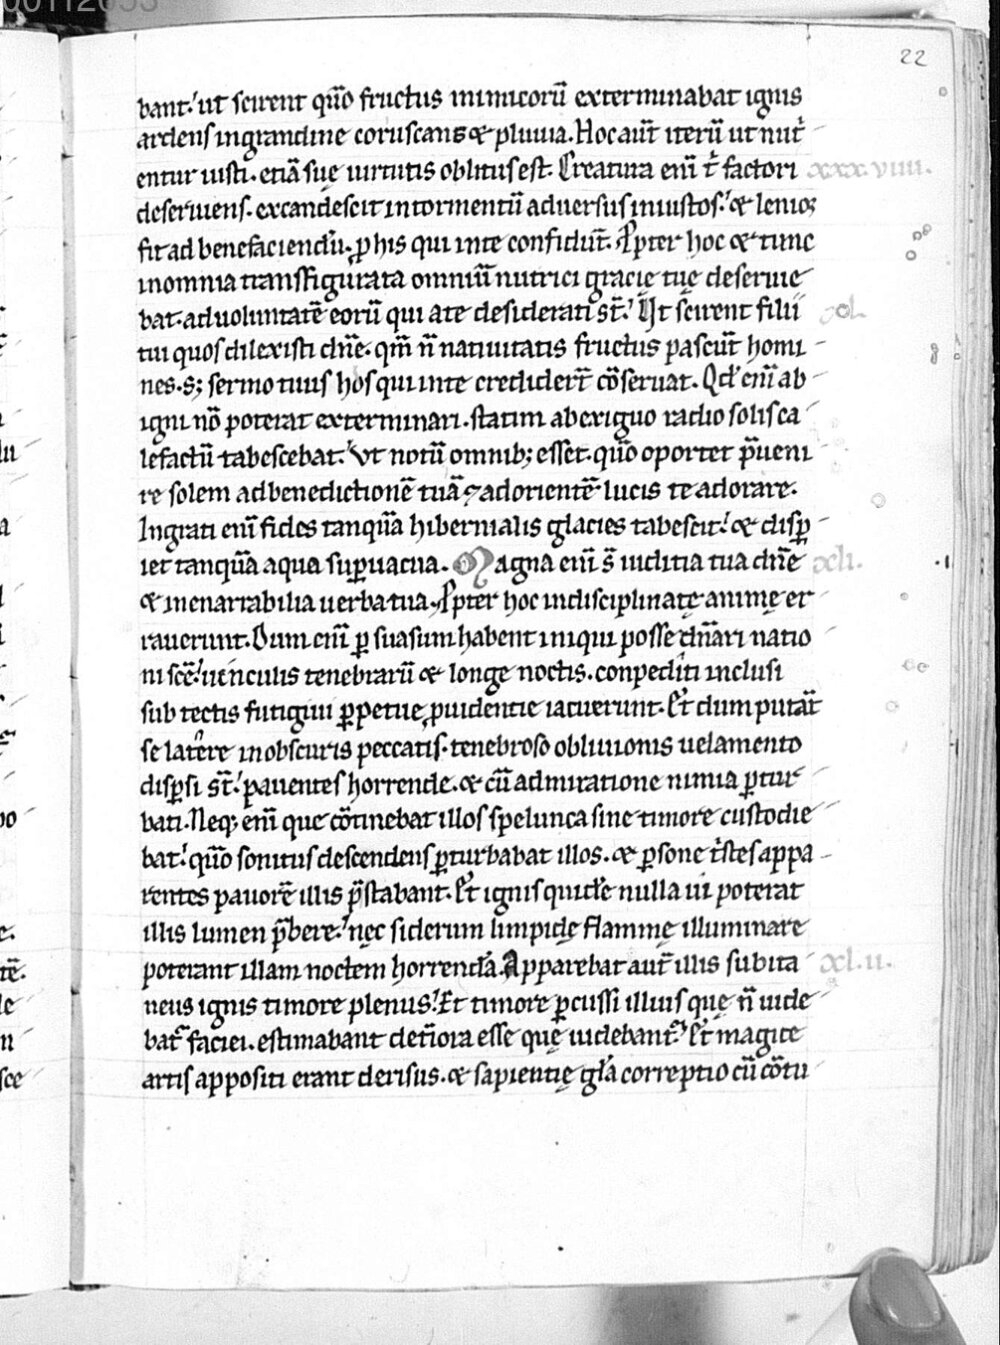 00112653
22
bant. ut scirent qūo fructus inimicorū exterminabat ignis
ardens in grandine coruscans & pluuia. Hoc aut̄ iterū ut nut̓
entur iusti. etiā suę uirtutis oblitus est. Creatura enī t̓ factori xxx.viiii.
deseruiens. excandescit in tormentū aduersus iniustos. & lenior
fit ad benefaciendū. ꝓ his qui in te confidūt. Ꝓpter hoc & tunc
in omnia transfigurata omniū nutrici gracię tuę deseruie
bat. ad uoluntatē eorū qui a te desiderati st̄. Ut scirent filii xl.
tui quos dilexisti dn̄e. qm̄ n̄ natiuitatis fructus pascūt homi
nes. s; sermo tuus hos qui in te credidert̄ cōseruat. Qd̓ enī ab
igni nō poterat exterminari. statim ab exiguo radio solis ca
lefactū tabescebat. Vt notū omnib; esset. qūo oportet p̄ueni
re solem ad benedictionē tuā ⁊ ad orientē lucis te adorare.
Ingrati enī fides tanquā hibernialis glacies tabescit. & disꝑ
iet tanquā aqua suꝑuacua. Magna enī s̄ iuditia tua dn̄e xli.
& inenarrabilia uerba tua. Ꝓpter hoc indisciplinatę animę er
rauerunt. Dum enī ꝑsuasum habent iniqui posse dn̄ari natio
ni scē. uinculis tenebrarū & longe noctis. conpediti inclusi
sub tectis fugitiui ꝑpetue ꝓuidentie iacuerunt. Et dum putāt
se latere in obscuris peccatis. tenebroso obliuionis uelamento
disꝑsi st̄. pauentes horrende. & cū admiratione nimia ꝑtur
bati. Neq; enī que cōtinebat illos spelunca sine timore custodie
bat. qūo sonitus descendens ꝑturbabat illos. & ꝑsone t̓stes appa
rentes pauorē illis p̄stabant. Et ignis quidē nulla ui poterat
illis lumen p̄bere. nec siderum limpidę flammę illuminare
poterant illam noctem horrendā. Apparebat aut̄ illis subita xl.ii.
neus ignis timore plenus. Et timore ꝑcussi illius quę n̄ uide
bat̄ faciei. estimabant det̓iora esse quę uidebant̄. Et magice
artis appositi erant derisus. & sapientię gl̄a correptio cū cōtu